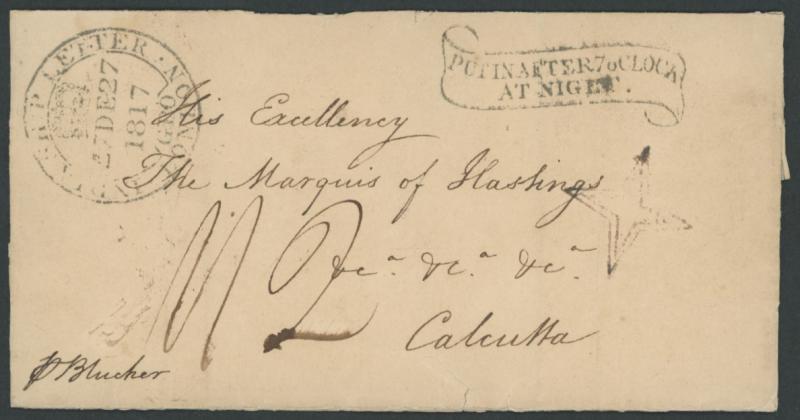 LETTER
27DE27
1817
PUT IN AFTER 7 oCLOCK
AT NIGHT.
His Excellency
The Marquis of Hastings
&ca. &ca. &ca.
Calcutta
p Blucher